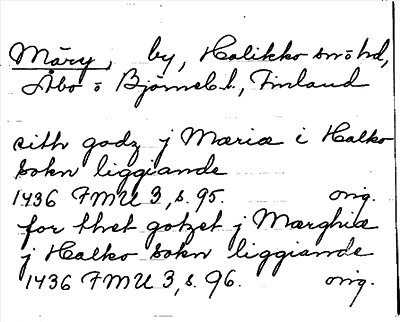 Märy, by, Halikko sn o hd,
Åbo o Björneb. l., Finland
sith godz j Mæria i Halko
sokn liggiande
1436 FMU 3, s. 95. orig.
for thet gotzet j Mærghia
j Halko sokn liggiande
1436 FMU 3, s. 96. orig.